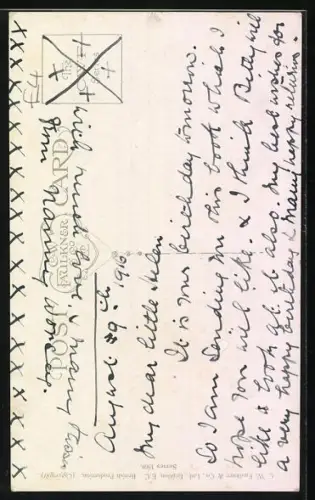 August 29th 1916
My dear little Helen
It is your birthday tomorrow.
So I am sending you this book which I
hope you will like. & I think Betty will
like to look at it also. My best wishes for
a very happy birthday & many happy returns.
With much love & many kisses
from
POST CARD
FAULKNER
C. W. Faulkner & Co., Ltd., London, E.C. British Production. (Copyright)
Series
X X X X X X X X X X X X X X X